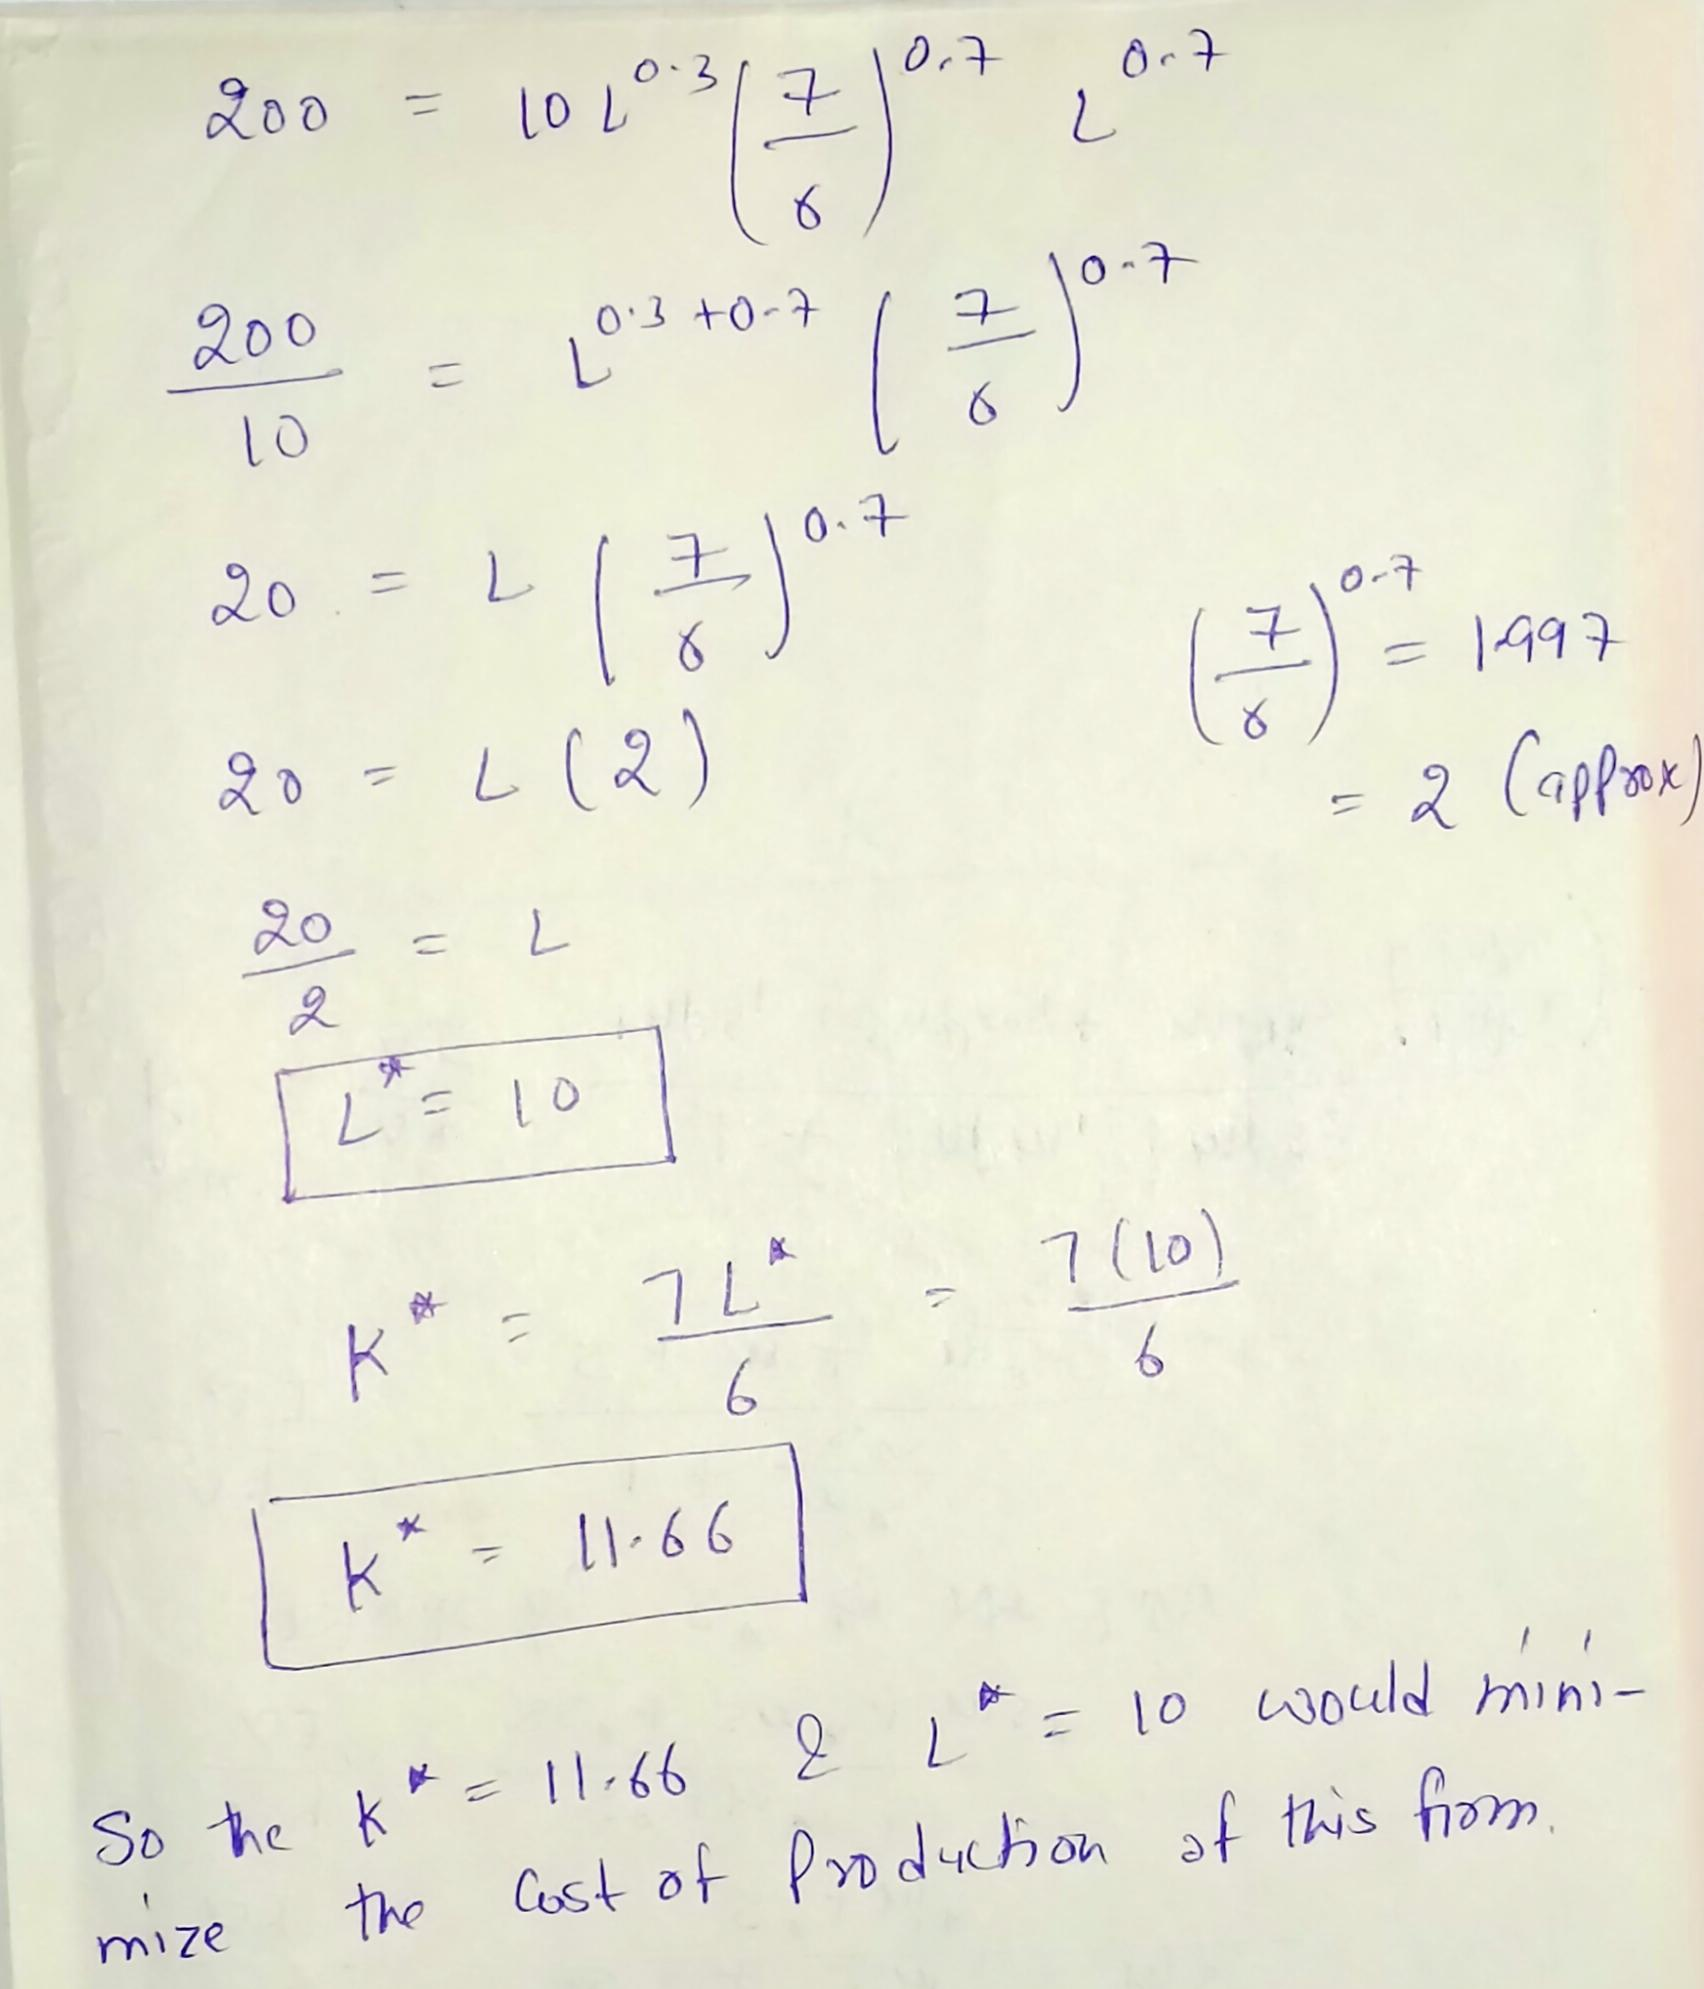 200 = 10 L^0.3 (7/6)^0.7 L^0.7
200/10 = L^0.3+0.7 (7/6)^0.7
20 = L (7/6)^0.7
(7/6)^0.7 = 1.997
20 = L (2)
= 2 (approx)
20/2 = L
L* = 10
K* = 7L*/6 = 7(10)/6
K* = 11.66
So the K* = 11.66 & L* = 10 would mini-
mize the cost of Production of this firm.